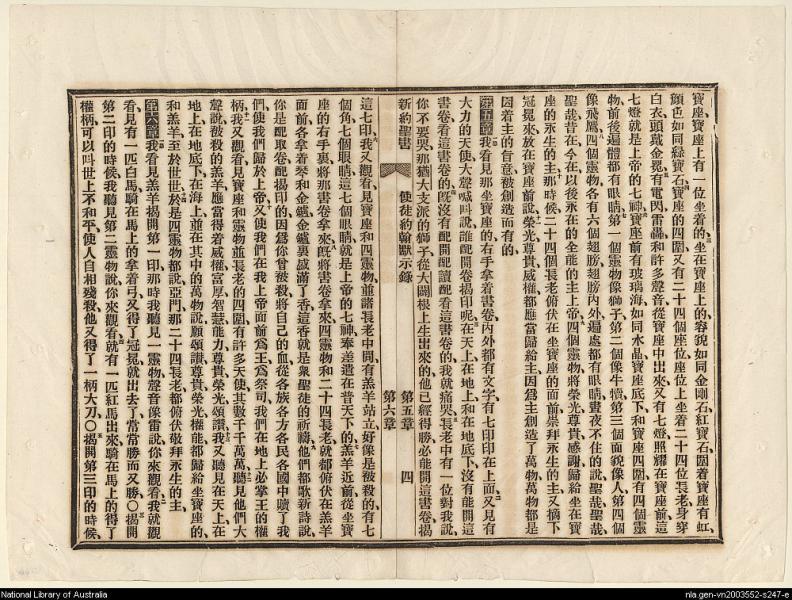 寶座、寶座上有一位坐着的、坐在寶座上的容貌如同金剛石紅寶石、圍着寶座有虹、
顏色如同綠寶石、寶座的四圍又有二十四個座位、座位上坐着二十四位長老、身穿
白衣、頭戴金冕、有電閃雷轟和許多聲音、從寶座中出來、又有七燈照耀在寶座前、這
七燈就是上帝的七神、寶座前有玻璃海如同水晶、寶座底下、和寶座四圍有四個靈
物、前後遍體都有眼睛、第一個靈物像獅子、第二個像牛犢、第三個面貌像人、第四個
像飛鷹、四個靈物各有六個翅膀、翅膀內外遍處都有眼睛、晝夜不住的說、聖哉聖哉、
聖哉、昔在今在以後永在的全能的主上帝、四個靈物將榮光尊貴感謝歸給坐在寶
座的永生的主、那時候二十四個長老俯伏在坐寶座的面前、崇拜永生的主、又摘下
冠冕來放在寶座前、說、榮光尊貴威權都應當歸給主、因爲主創造了萬物、萬物都是
因着主的旨意被創造而有的、
第五章 我看見那坐寶座的、右手拿着書卷、內外都有文字、有七印印在上面、又見有
大力的天使大聲喊叫說、誰配開卷揭印呢、在天上在地上和在地底下、沒有能開這
書卷看這書卷的、旣沒有配開配讀配看這書卷的、我就痛哭、長老中有一位對我說、
你不要哭、那猶大支派的獅子、從大闢根上生出來的、他已經得勝、必能開這書卷揭
新約聖書 使徒約翰默示錄 第五章 第六章 四
這七印、我又觀看、見寶座和四靈物並諸長老中間、有羔羊站立、好像是被殺的、有七
個角七個眼睛、這七個眼睛就是上帝的七神、奉差遣在普天下的、羔羊近前從坐寶
座的右手裏將那書卷拿來、旣將書卷拿來、四靈物和二十四長老、就都俯伏在羔羊
面前、各拿着琴和金鑪、金鑪裏盛滿了香、這香就是衆聖徒的祈禱、他們都歌新詩說、
你是配取卷配揭印的、因爲你曾被殺、將自己的血從各族各方各民各國中贖了我
們、使我們歸於上帝、又使我們在我上帝面前爲王爲祭司、我們在地上必掌王的權
柄、我又觀看、見寶座和靈物並長老的四圍、有許多天使、其數千千萬萬、聽見他們大
聲說、被殺的羔羊應當得着威權富厚智慧能力尊貴榮光頌讚、我又聽見在天上在
地上在地底下在海上、並在其中的萬物說、願頌讚尊貴榮光權能都歸給坐寶座的
和羔羊、至於世世、於是四靈物都說亞們、那二十四長老都俯伏敬拜永生的主、
第六章 我看見羔羊揭開第一印、那時我聽見一靈物聲音像雷說、你來觀看、我就觀
看、見有一匹白馬、騎在馬上的拿着弓、又得了冠冕、就出去了、常常勝而又勝、○揭開
第二印的時候、我聽見第二靈物說、你來觀看、就有一匹紅馬出來、騎在馬上的得了
權柄、可以叫世上不和平、使人自相殘殺、他又得了一柄大刀、○揭開第三印的時候、
National Library of Australia
nla.gen-vn2003552-s247-e